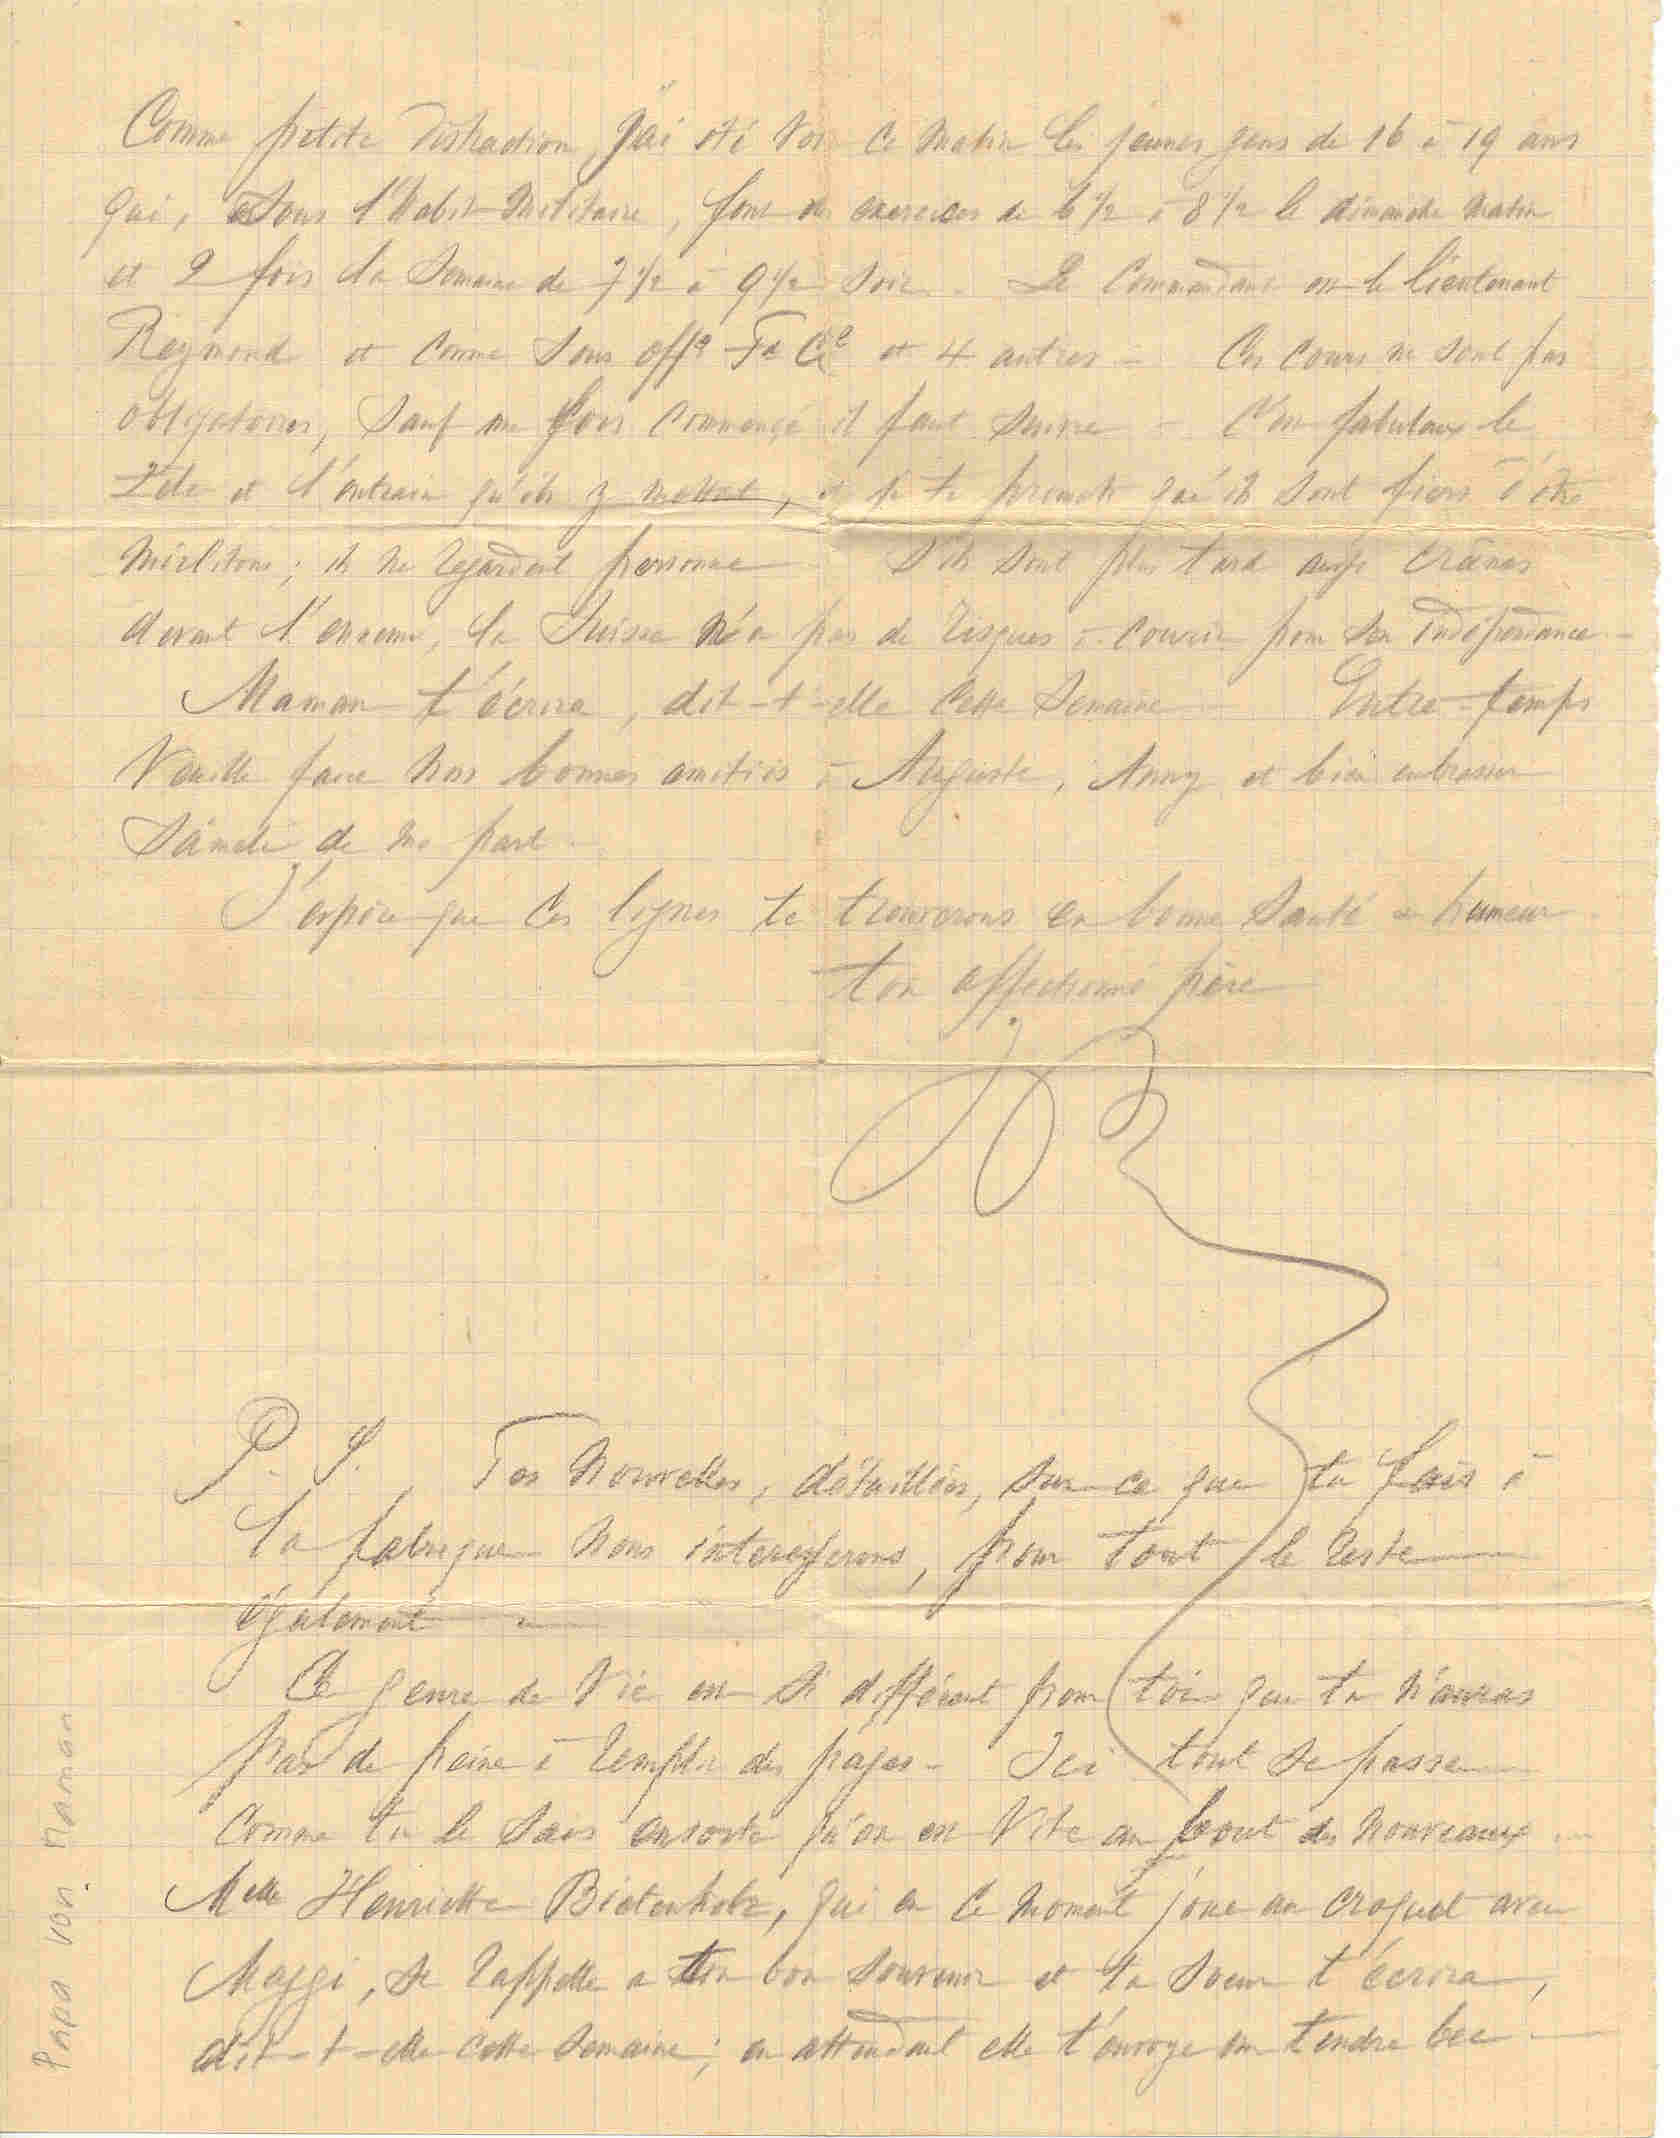 Comme petite distraction, j'ai été voir ce matin les jeunes gens de 16 à 19 ans
qui, sous l'habit militaire, font des exercices de 6 1/2 à 8 1/2 le dimanche matin
et 2 fois la semaine de 7 1/2 à 9 1/2 soir. Le Commandant est le lieutenant
Reymond et comme sous off. et 4 autres – Ces cours ne sont pas
obligatoires, sauf une fois commencé il faut suivre – C'est fabuleux le
zèle et l'entrain qu'ils y mettent, et je te promets qu'ils sont fiers d'être
mirlitons; ils ne regardent personne S'ils sont plus tard aussi crânes
devant l'ennemi, la Suisse n'a pas de risques à courir pour son indépendance –
Maman t'écrira, dit-t-elle cette semaine – Entre-temps
veuille faire nos bonnes amitiés à Auguste, Anny et bien embrasser
de ma part –
J'espère que ces lignes te trouverons en bonne santé et humeur
ton affectionné père
P. S. Tes nouvelles, détaillées, sur ce que tu fais à
la fabrique nous interesserons, pour tout le reste
également –
Ce genre de vie est si différent pour toi que tu n'auras
pas de peine à remplir des pages – Ici tout se passe
comme tu le sais ensorte qu'on est vite au bout des nouveaux –
Melle Henriette Bietenholz, qui en ce moment joue au croquet avec
Maggi, se rappelle a ton bon souvenir et ta soeur t'écrira,
dit-t-elle cette semaine; en attendant elle t'envoye un tendre bec –
Papa von Maman